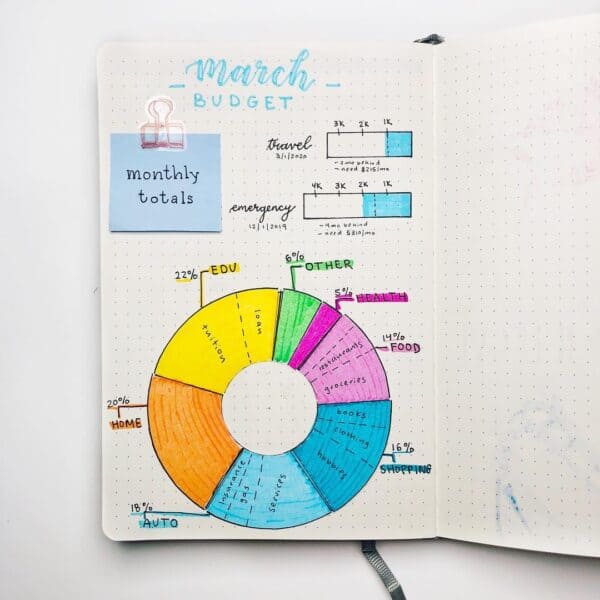 march
BUDGET
monthly
totals
travel
3/1/2020
3K 2K 1K
emergency
12/1/2019
4K 3K 2K 1K
22% EDU
6% OTHER
5% HEALTH
14% FOOD
16% SHOPPING
18% AUTO
20% HOME
tuition
loan
restaurants
groceries
books
clothing
hobbies
services
gas
insurance